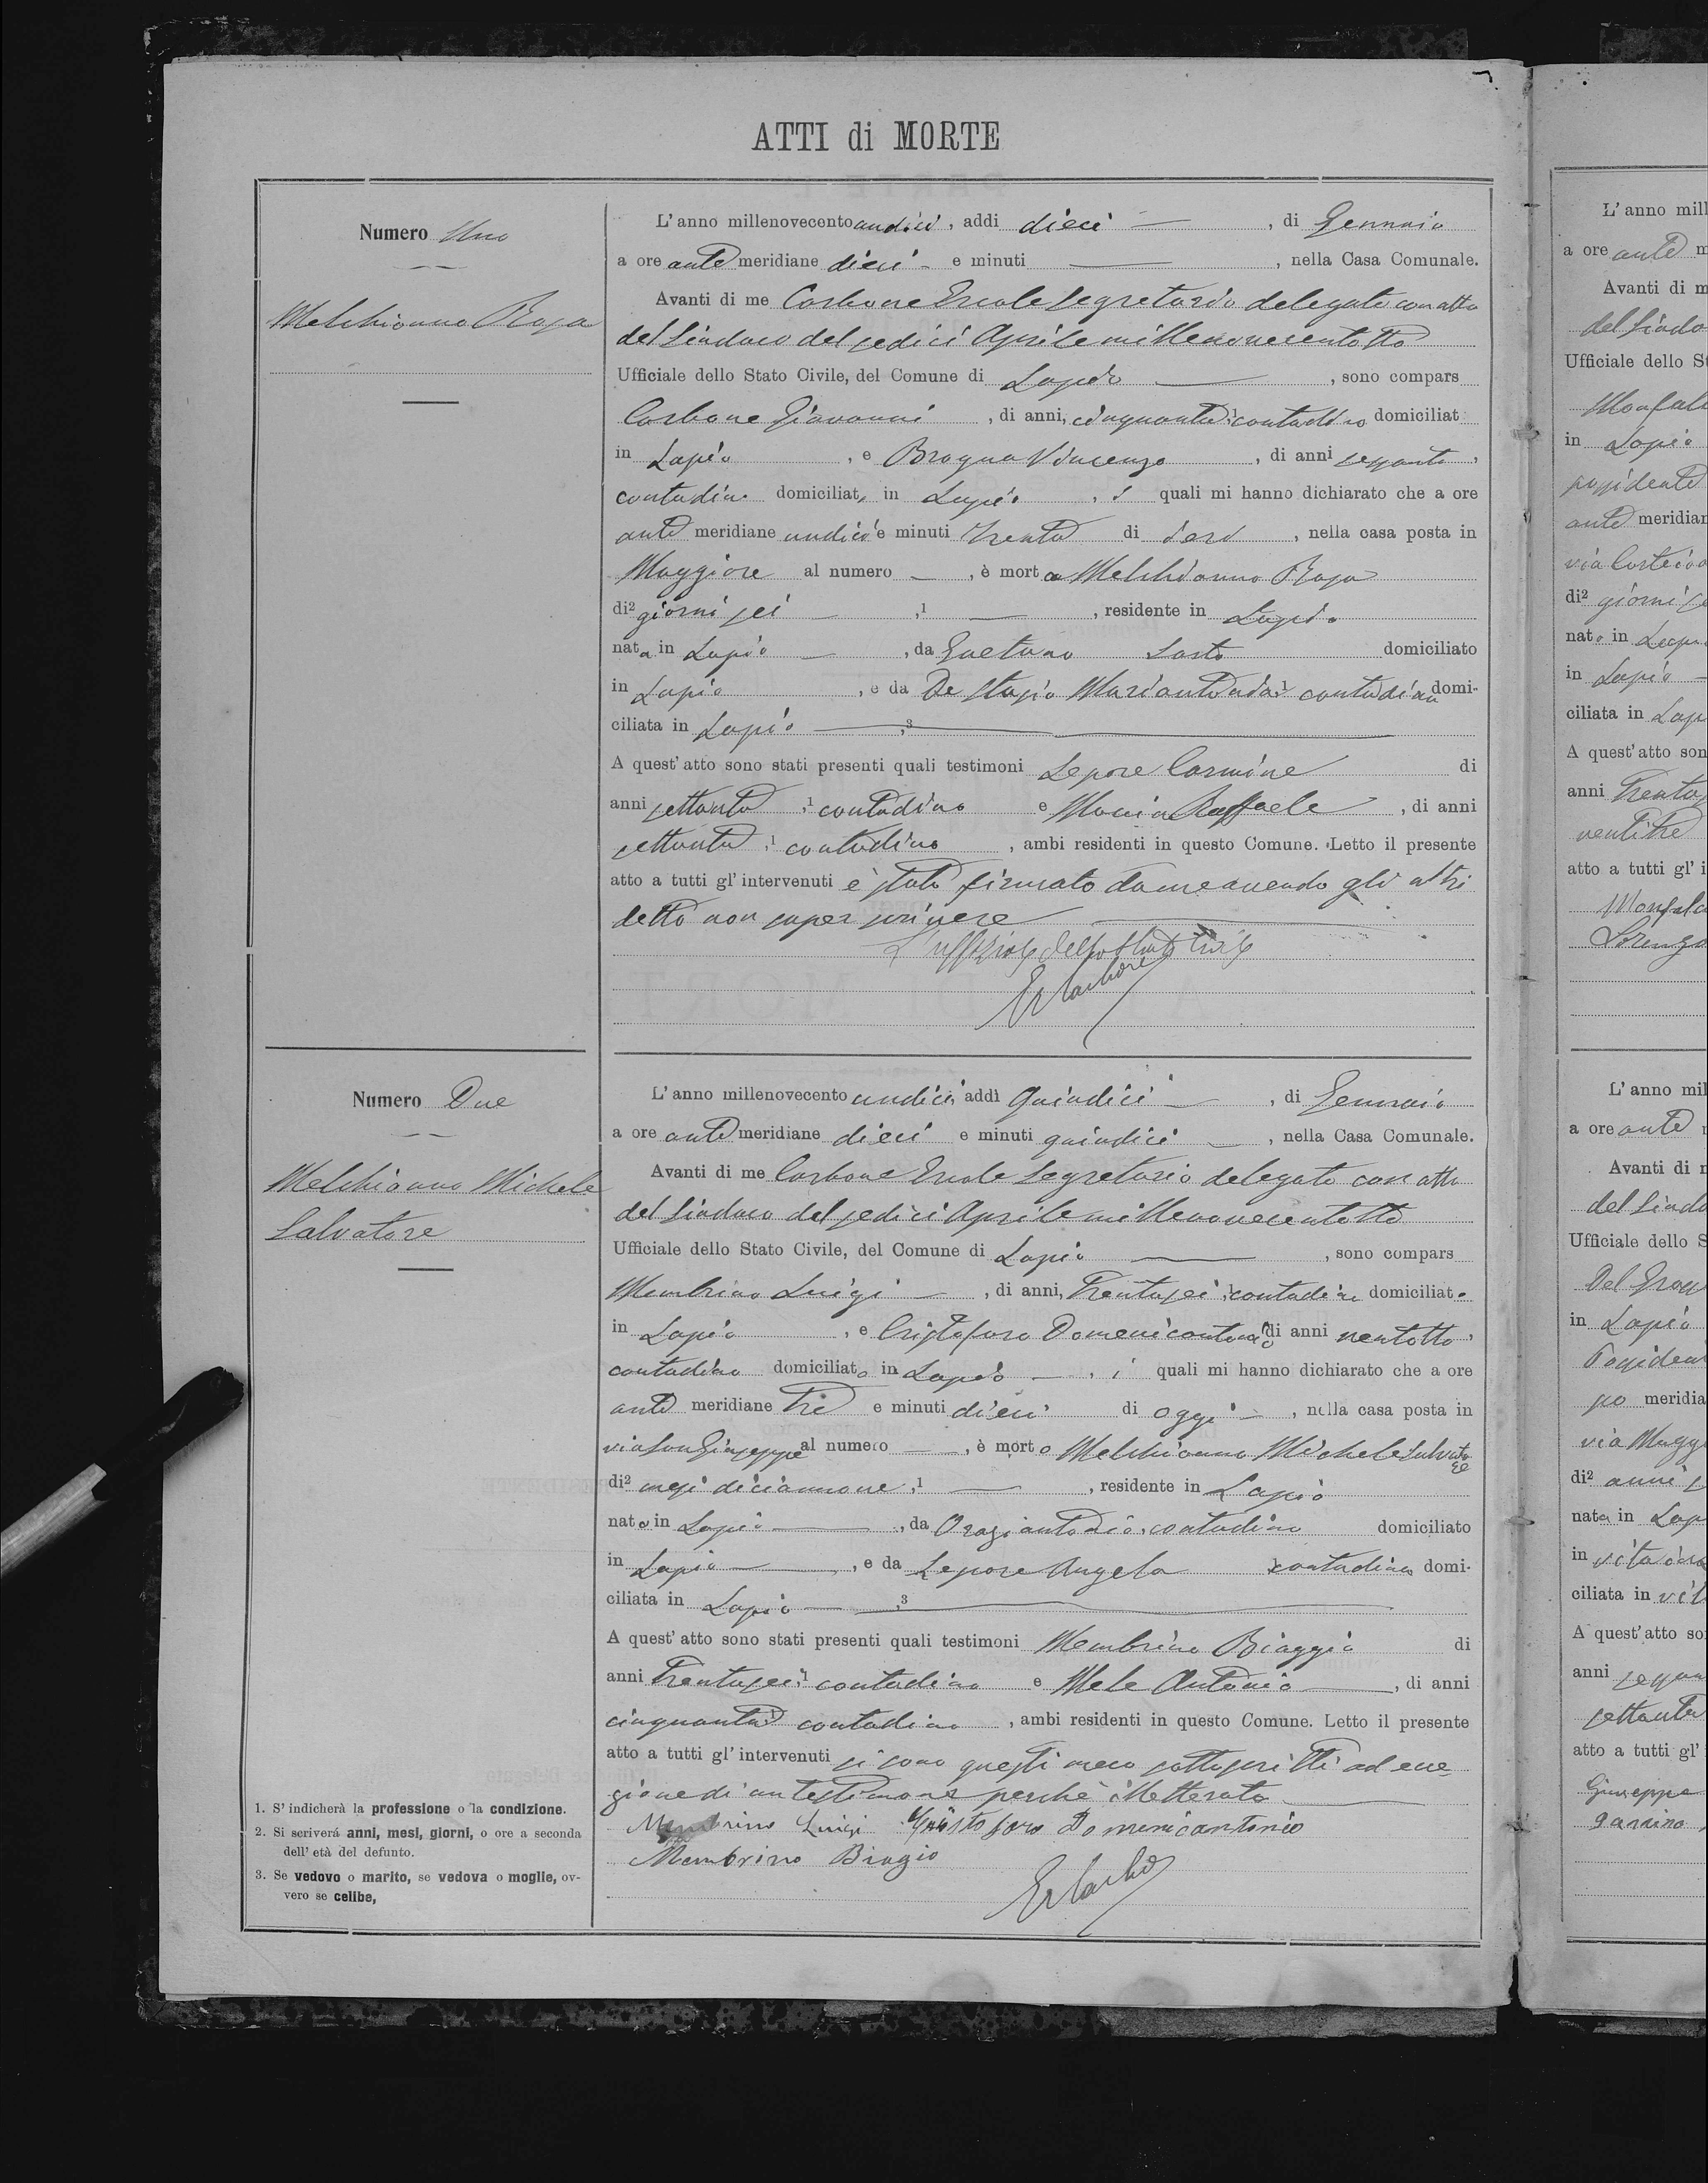 ATTI di MORTE
Numero Uno
Melchionno Rosa
L'anno millenovecento undici, addì dieci —, di Gennaio
a ore ante meridiane dieci - e minuti —, nella Casa Comunale.
Avanti di me Carbone Ercole Segretario delegato con atto
del Sindaco del sedici Aprile millenovecentotto
Ufficiale dello Stato Civile, del Comune di Lapio —, sono compars
Carbone Giovanni, di anni, cinquanta, 1 contadino domiciliat
in Lapio, e Brogna Vincenzo, di anni sessanta,
contadino domiciliato in Lapio, i quali mi hanno dichiarato che a ore
ante meridiane undici e minuti trenta di ieri, nella casa posta in
Maggiore al numero —, è morta Melchionno Rosa
di2 giorni sei —, 1 —, residente in Lapio
nata in Lapio —, da Gaetano Sarto domiciliato
in Lapio, e da De Stasio Mariantonia, 1 contadina domi-
ciliata in Lapio —, 3 —
A quest'atto sono stati presenti quali testimoni Lepore Carmine di
anni settanta, 1 contadino e Raffaele, di anni
settanta, 1 contadino, ambi residenti in questo Comune. Letto il presente
atto a tutti gl'intervenuti è stato firmato da me avendo gli altri
detto non saper scrivere —
L'uffiziale dello Stato Civile
E. Carbone
Numero Due
Melchionno Michele
Salvatore
L'anno millenovecento undici, addì Quindici —, di Gennaio
a ore ante meridiane dieci e minuti quindici —, nella Casa Comunale.
Avanti di me Carbone Ercole Segretario delegato con atto
del Sindaco del sedici Aprile millenovecentotto
Ufficiale dello Stato Civile, del Comune di Lapio —, sono compars
Membrino Luigi —, di anni, Trentasei, 1 contadino domiciliato
in Lapio, e Cristofaro Domenicantonio di anni ventotto,
contadino domiciliato in Lapio —, i quali mi hanno dichiarato che a ore
ante meridiane Tre e minuti dieci di oggi —, nella casa posta in
via San Giuseppe al numero —, è morto Melchionno Michele Salvatore
di2 mesi diciannove, 1 —, residente in Lapio
nato in Lapio —, da Oraziantonio, contadino domiciliato
in Lapio —, e da Lepore Angela contadina domi-
ciliata in Lapio —, 3 —
A quest'atto sono stati presenti quali testimoni Membrino Biaggio di
anni Trentasei, 1 contadino e Mele Antonio —, di anni
cinquanta, 1 contadino, ambi residenti in questo Comune. Letto il presente
atto a tutti gl'intervenuti si sono questi meco sottoscritti ad ecce-
zione di un testimone perchè illetterato —
Membrino Luigi Cristofaro Domenicantonio
Membrino Biagio
E. Carbone
1. S'indicherà la professione o la condizione.
2. Si scriverá anni, mesi, giorni, o ore a seconda
dell'età del defunto.
3. Se vedovo o marito, se vedova o moglie, ov-
vero se celibe,
L'anno mill
a ore ante m
Avanti di m
del Sindo
Ufficiale dello St
in Lapio
possidente
ante meridian
di2 giorni se
nato in Lapi
in Lapio —
ciliata in Lap
A quest'atto son
anni Trenta
ventitre
atto a tutti gl'i
Lorenzo
L'anno mil
a ore ante
Avanti di m
del Sindo
Ufficiale dello S
in Lapio
Posiden
po meridia
via Magg
di2 anni s
nata in Lap
in vita
ciliata in vit
A quest'atto so
anni sessan
settanta
atto a tutti gl'
Giuseppe